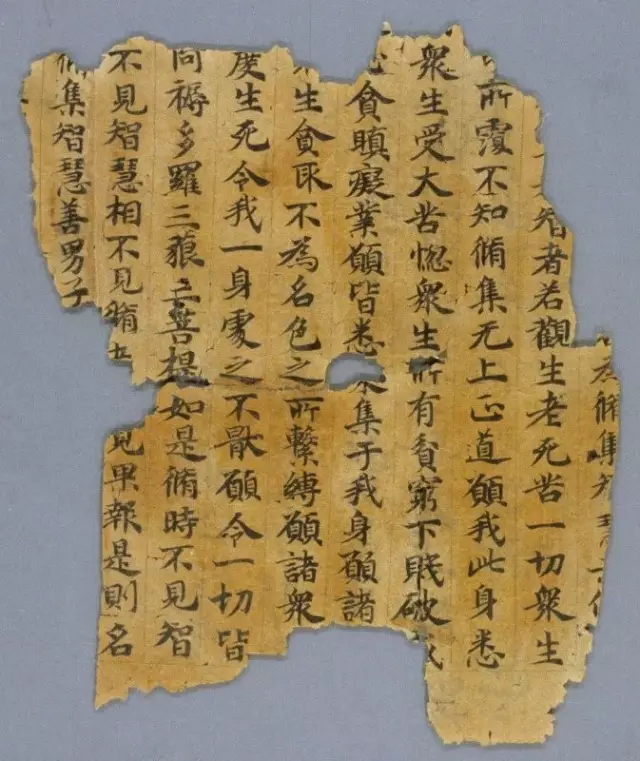 為脩集智
智者若觀生老死苦一切衆生
所覆不知脩集无上正道願我此身悉
衆生受大苦惱衆生所有貧窮下賤破
貪瞋癡業願皆悉來集于我身願諸
生貪取不為名色之所繫縛願諸衆
度生死令我一身處之不猒願令一切皆
阿耨多羅三藐三菩提如是脩時不見智
不見智慧相不見脩見果報是則名
脩集智慧善男子